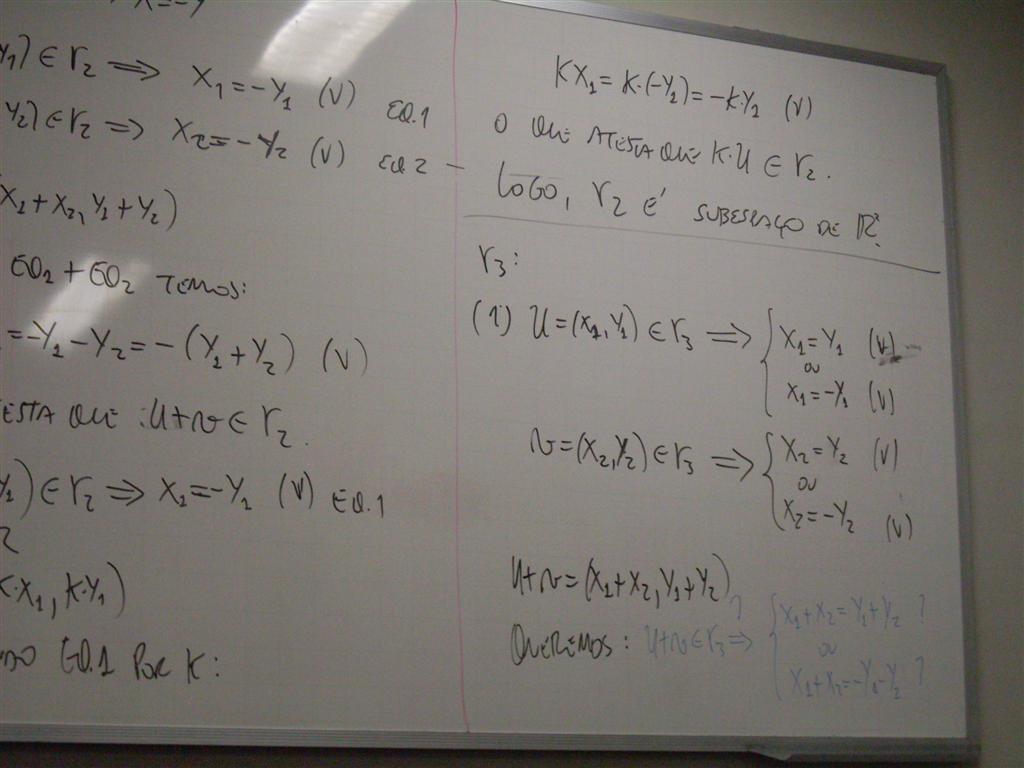 X=-Y
Y1) ∈ r2 ⟹ X1=-Y1 (V) EQ.1
Y2) ∈ r2 ⟹ X2=-Y2 (V) EQ 2 -
X1+X2, Y1+Y2)
EQ2+EQ2 TEMOS:
=-Y1-Y2=-(Y1+Y2) (V)
ESTA QUE :U+v ∈ r2.
Y1) ∈ r2 ⟹ X1=-Y1 (V) EQ.1
K·X1, K·Y1)
DO EQ.1 POR K:
KX1=K·(-Y1)=-K·Y1 (V)
O QUE ATESTA QUE K·U ∈ r2.
LOGO, r2 É SUBESPAÇO DE R².
r3:
(1) U=(X1,Y1) ∈ r3 ⟹ { X1=Y1 (V)
OU
X1=-Y1 (V)
v=(X2,Y2) ∈ r3 ⟹ { X2=Y2 (V)
OU
X2=-Y2 (V)
U+v=(X1+X2, Y1+Y2)
QUEREMOS: U+v ∈ r3 ? ⟹ { X1+X2=Y1+Y2 ?
OU
X1+X2=-Y1-Y2 ?